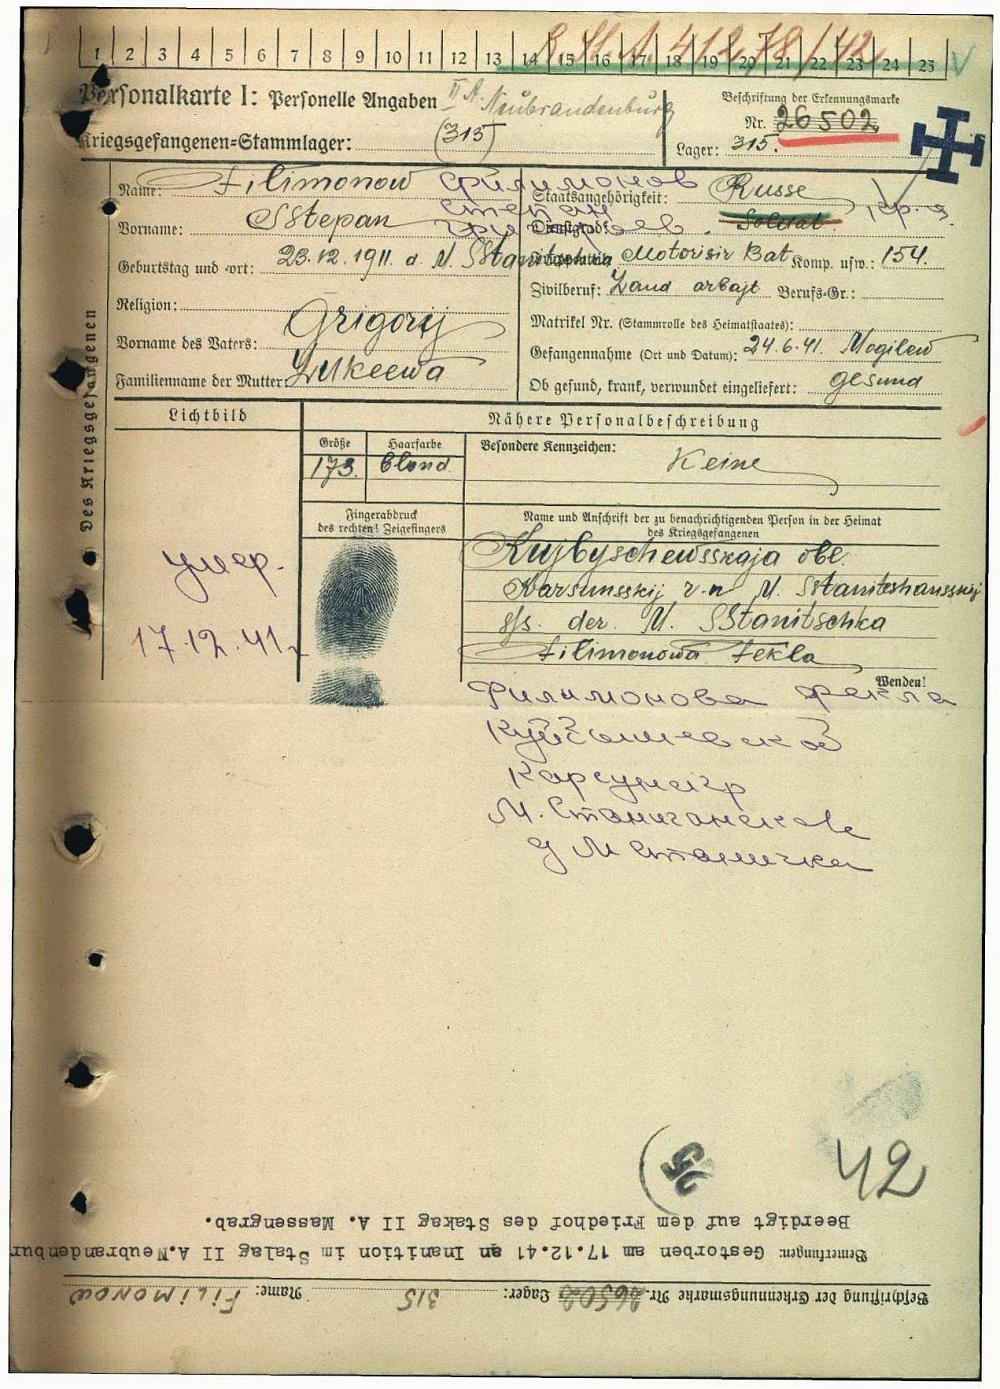 1 2 3 4 5 6 7 8 9 10 11 12 13 14 15 16 17 18 19 20 21 22 23 24 25
412 78/42
Personalkarte I: Personelle Angaben
II A. Neubrandenburg
Beschriftung der Erkennungsmarke
Nr. 26502
Kriegsgefangenen-Stammlager: (315)
Lager: 315.
Des Kriegsgefangenen
Name: Filimonow Филимонов
Staatsangehörigkeit: Russe
Vorname: SStepan Степан
Dienstgrad: Soldat
Григорьев.
Geburtstag und -ort: 23.12.1911. d. M. SStanitschka
Motorisir Bat Komp. usw.: 154.
Religion:
Zivilberuf: Land arbajt Berufs-Gr.:
Matrikel Nr. (Stammrolle des Heimatstaates):
Vorname des Vaters: Grigorij
Gefangennahme (Ort und Datum): 24.6.41. Mogilew
Familienname der Mutter:
Ob gesund, krank, verwundet eingeliefert: gesund
Lichtbild
Nähere Personalbeschreibung
Größe Haarfarbe Besondere Kennzeichen:
173. blond. Keine
Fingerabdruck
des rechten! Zeigefingers
Name und Anschrift der zu benachrichtigenden Person in der Heimat
des Kriegsgefangenen
Kujbyschewsskaja obl.
Karsunsskij r-n M. SStanitschansskij
s/s. der. M. SStanitschka
Filimonowa Fekla
умер.
17.12.41.
Wenden!
Филимонова Фекла
Куйбышевской
М.
д М Станичка
42
Beerdigt auf dem Friedhof des Stakag II A. Massengrab.
Bemerkungen: Gestorben am 17.12.41 an Inanition im Stalag II A.Neubrandenbur
Beschriftung der Erkennungsmarke Nr. 26502 Lager: 315 Name: FILIMONOW